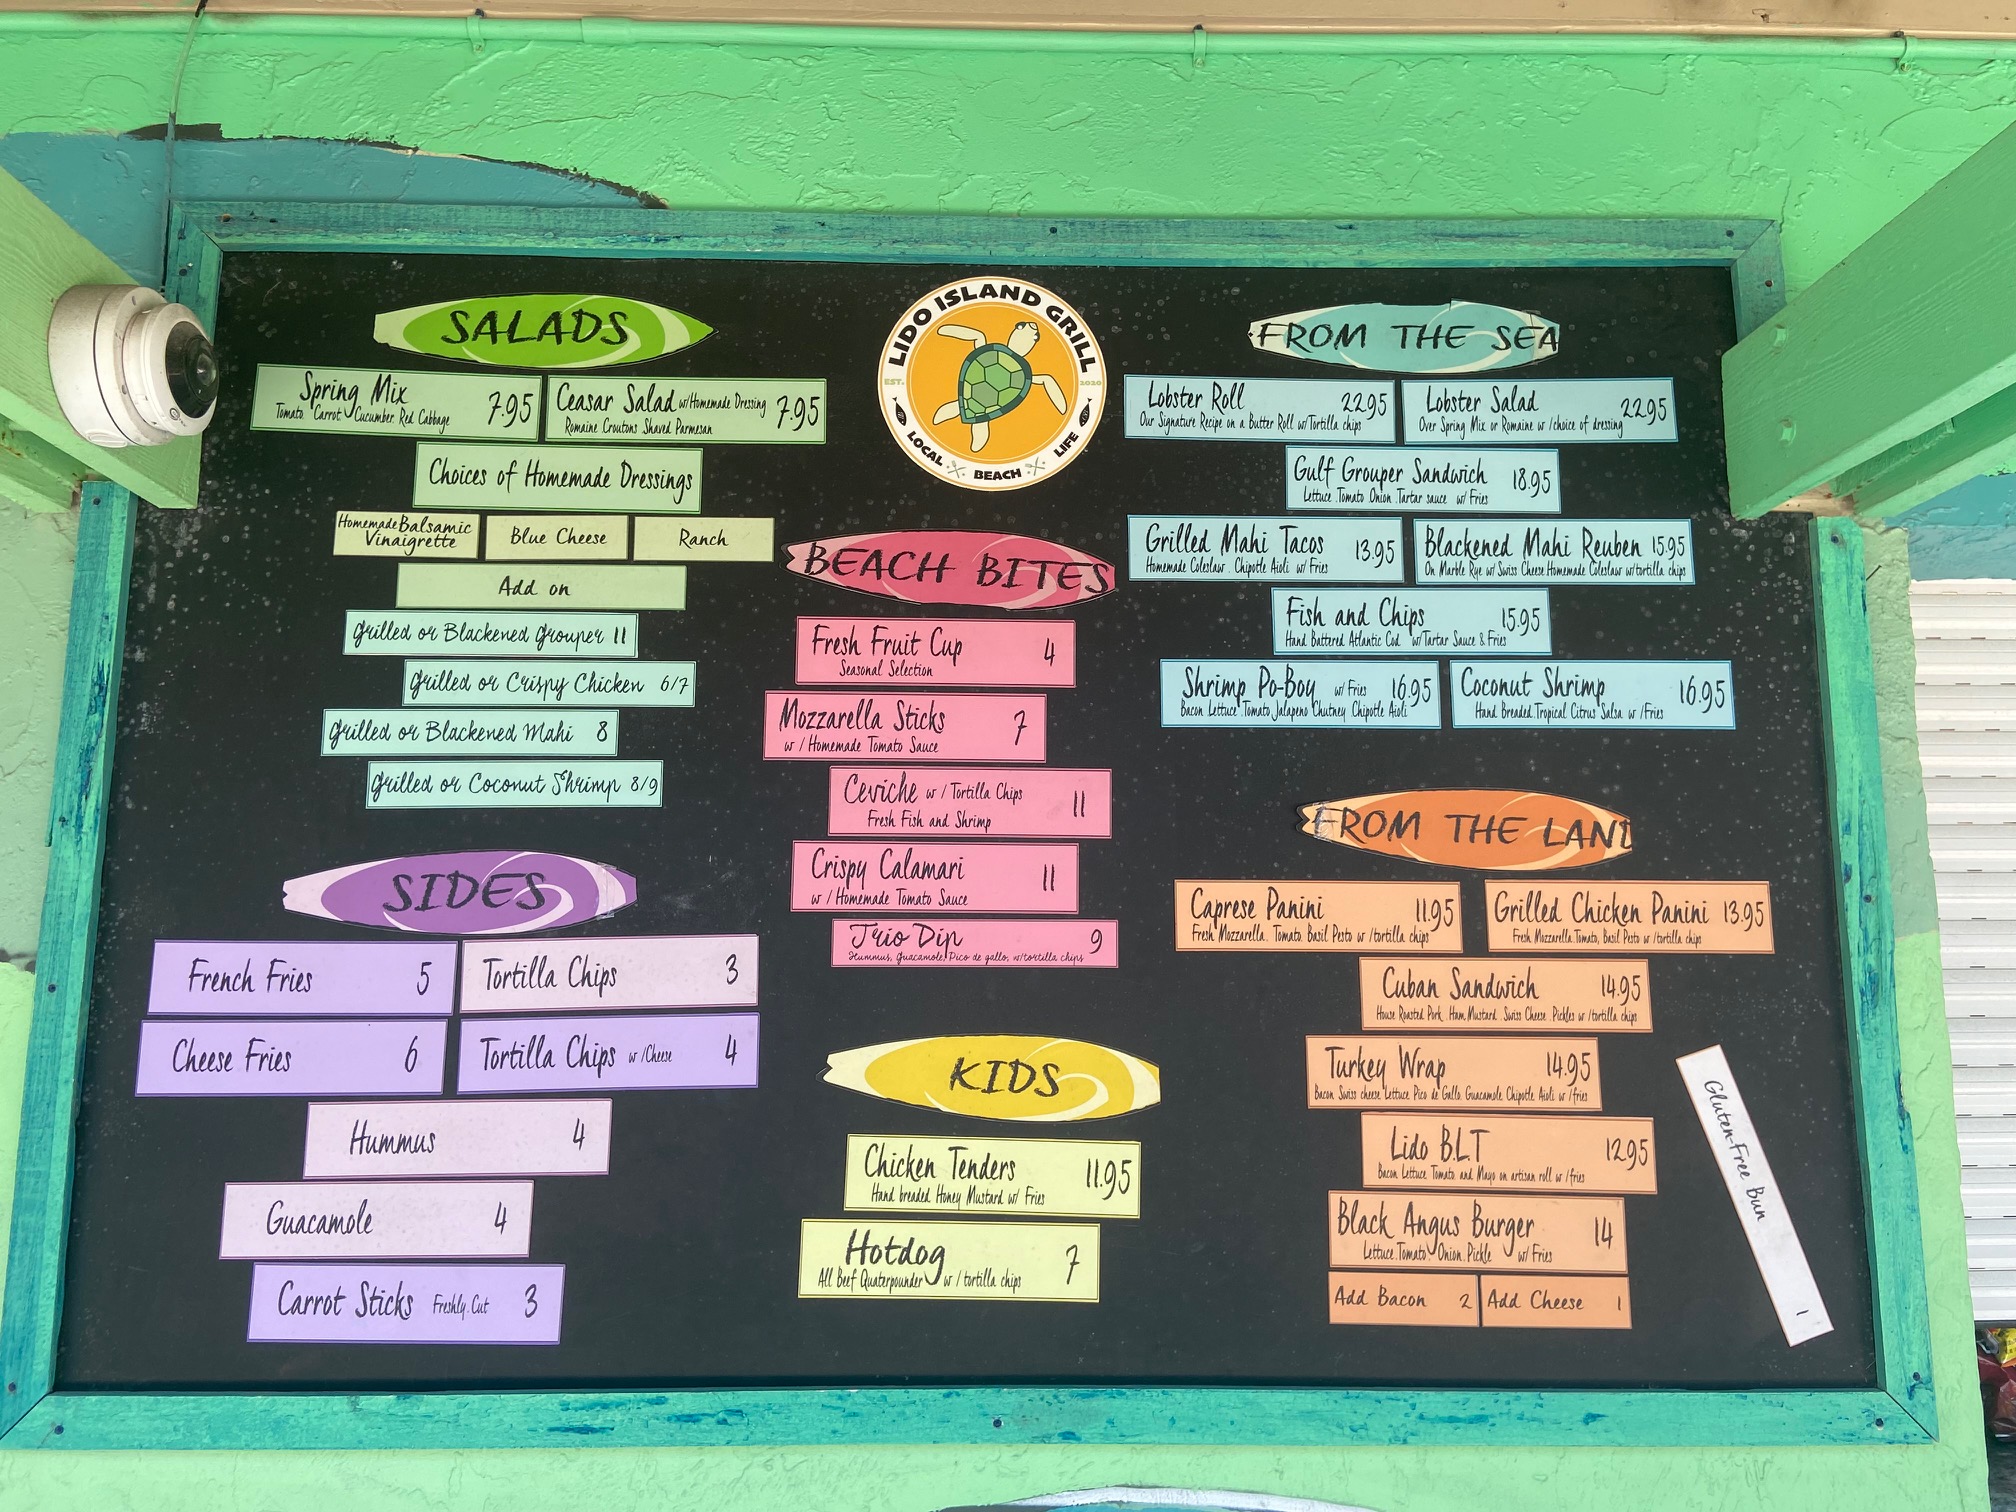 LIDO ISLAND GRILL
EST. 2020
LOCAL BEACH LIFE
SALADS
Spring Mix 7.95
Tomato Carrot Cucumber Red Cabbage
Ceasar Salad w/Homemade Dressing 7.95
Romaine Croutons Shaved Parmesan
Choices of Homemade Dressings
Homemade Balsamic
Vinaigrette
Blue Cheese
Ranch
Add on
Grilled or Blackened Grouper 11
Grilled or Crispy Chicken 6/7
Grilled or Blackened Mahi 8
Grilled or Coconut Shrimp 8/9
SIDES
French Fries 5
Tortilla Chips 3
Cheese Fries 6
Tortilla Chips w/Cheese 4
Hummus 4
Guacamole 4
Carrot Sticks Freshly Cut 3
BEACH BITES
Fresh Fruit Cup 4
Seasonal Selection
Mozzarella Sticks 7
w / Homemade Tomato Sauce
Ceviche w / Tortilla Chips 11
Fresh Fish and Shrimp
Crispy Calamari 11
w / Homemade Tomato Sauce
Trio Dip 9
Hummus, Guacamole, Pico de gallo, w/tortilla chips
KIDS
Chicken Tenders 11.95
Hand breaded Honey Mustard w/ Fries
Hotdog 7
All Beef Quaterpounder w / tortilla chips
FROM THE SEA
Lobster Roll 22.95
Our Signature Recipe on a Butter Roll w/Tortilla chips
Lobster Salad 22.95
Over Spring Mix or Romaine w /choice of dressing
Gulf Grouper Sandwich 18.95
Lettuce .Tomato Onion .Tartar sauce w/ Fries
Grilled Mahi Tacos 13.95
Homemade Coleslaw . Chipotle Aioli w/ Fries
Blackened Mahi Reuben 15.95
On Marble Rye w/ Swiss Cheese Homemade Coleslaw w/tortilla chips
Fish and Chips 15.95
Hand Battered Atlantic Cod w/Tartar Sauce & Fries
Shrimp Po-Boy w/ Fries 16.95
Bacon Lettuce .Tomato Jalapeno Chutney Chipotle Aioli
Coconut Shrimp 16.95
Hand Breaded.Tropical Citrus Salsa w /Fries
FROM THE LAND
Caprese Panini 11.95
Fresh Mozzarella. Tomato. Basil Pesto w /tortilla chips
Grilled Chicken Panini 13.95
Fresh Mozzarella.Tomato, Basil Pesto w /tortilla chips
Cuban Sandwich 14.95
House Roasted Pork .Ham.Mustard . Swiss Cheese .Pickles w /tortilla chips
Turkey Wrap 14.95
Bacon Swiss cheese Lettuce Pico de Gallo. Guacamole Chipotle Aioli w /fries
Lido B.L.T 12.95
Bacon Lettuce Tomato and Mayo on artisan roll w /fries
Black Angus Burger 14
Lettuce.Tomato Onion.Pickle w/ Fries
Add Bacon 2
Add Cheese 1
Gluten-Free Bun 1